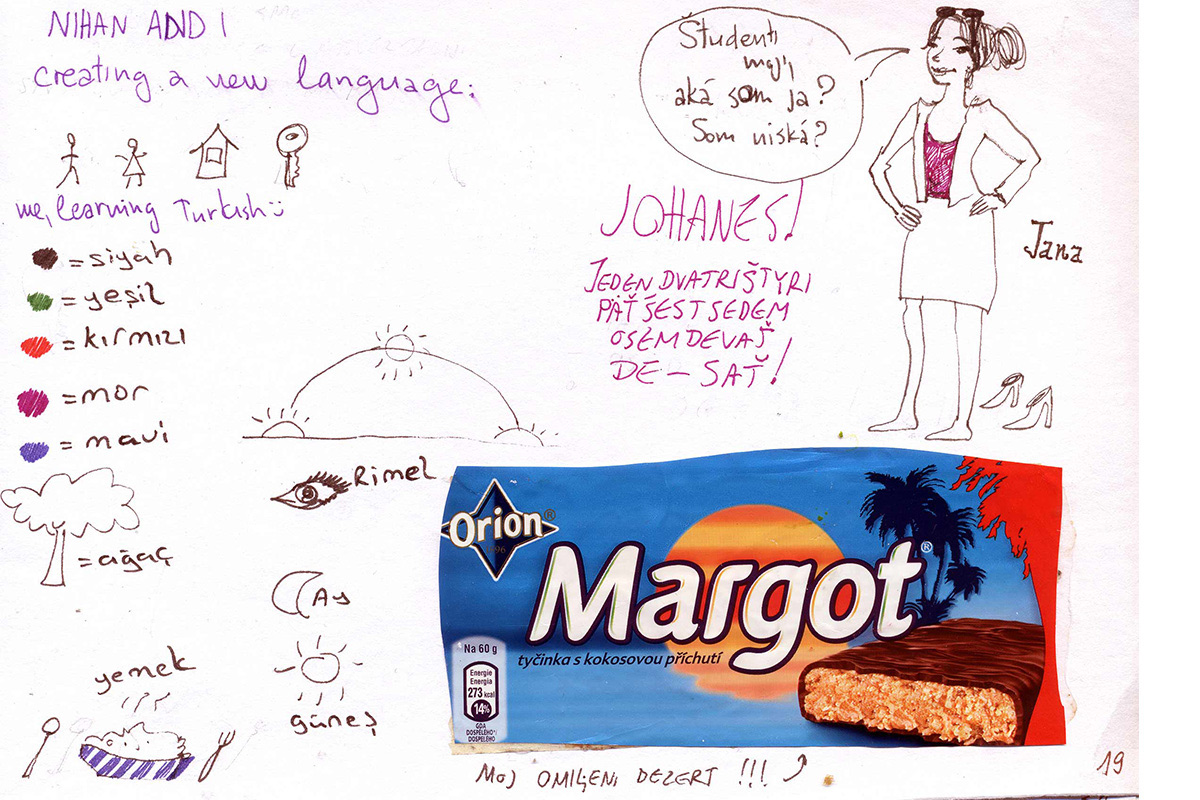 NIHAN AND I
creating a new language:
me, learning Turkish
= siyah
= yeşil
= kırmızı
= mor
= mavi
= ağaç
yemek
Rimel
Ay
güneş
Študenti
moji,
aká som ja?
Som niská?
Jana
JOHANES!
JEDEN DVA TRI ŠTYRI
PÄŤ ŠEST SEDEM
OSEM DEVAŤ
DE – SAŤ!
Orion®
1896
Margot®
tyčinka s kokosovou příchutí
Na 60 g
Energie
Energia
273 kcal
14%
GDA
DOSPĚLÉHO*/
DOSPELÉHO
MOJ OMILJENI DEZERT !!!
19